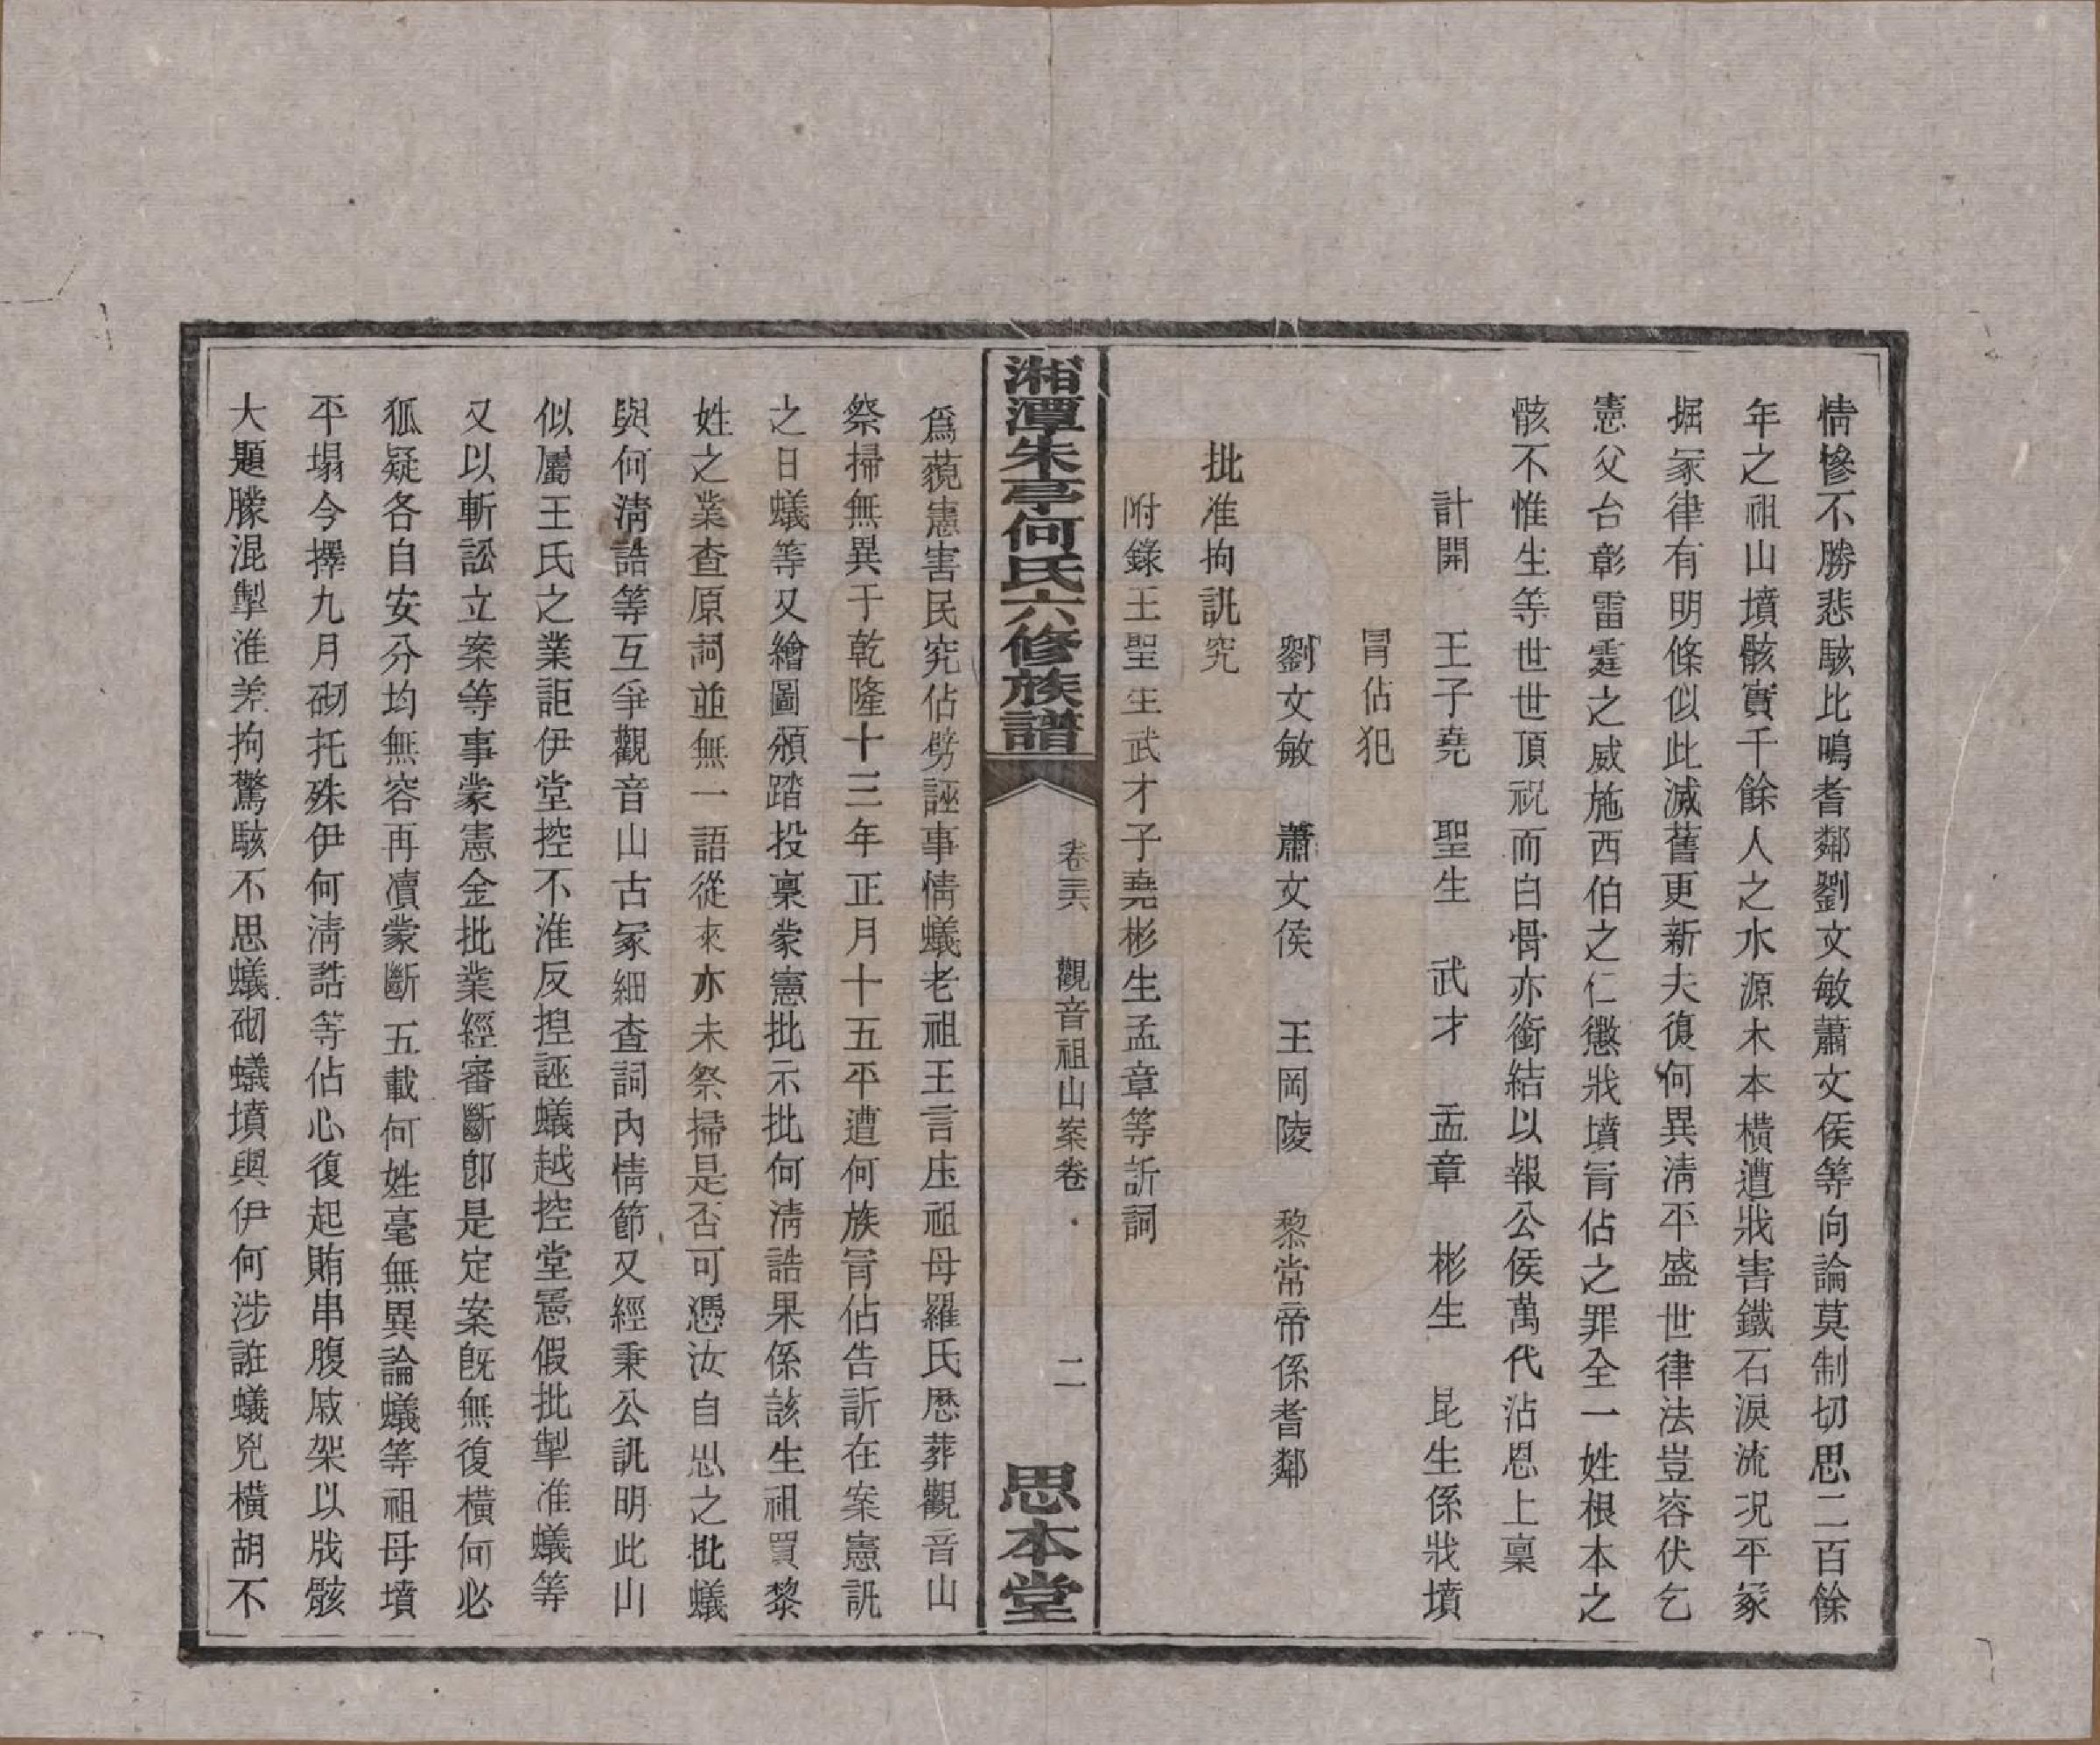 情慘不勝悲駭比鳴耆鄰劉文敏蕭文侯等向論莫制切思二百餘
年之祖山墳骸實千餘人之水源木本橫遭戕害鐵石淚流况平冢
掘冢律有明條似此滅舊更新夫復何異清平盛世律法豈容伏乞
憲父台彰雷霆之威施西伯之仁懲戕墳冐佔之罪全一姓根本之
骸不惟生等世世頂祝而白骨亦銜結以報公侯萬代沾恩上稟
計開　王子堯　聖生　武才　孟章　彬生　昆生係戕墳
冐佔犯
劉文敏　蕭文侯　王岡陵　黎常帝係耆鄰
批准拘訊究
附錄王聖生武才子堯彬生孟章等訢詞
湘潭朱亭何氏六修族譜
卷三六　觀音祖山案卷　二
思本堂
爲藐憲害民究佔劈誣事情蟻老祖王言庒祖母羅氏歷葬觀音山
祭掃無異于乾隆十三年正月十五平遭何族冐佔告訢在案憲訊
之日蟻等又繪圖頒踏投稟蒙憲批示批何清誥果係該生祖買黎
姓之業查原詞並無一語從來亦未祭掃是否可憑汝自思之批蟻
與何清誥等互爭觀音山古冢細查詞內情節又經秉公訊明此山
似屬王氏之業詎伊堂控不准反揑誣蟻越控堂憲假批掣准蟻等
又以斬訟立案等事蒙憲金批業經審斷卽是定案旣無復橫何必
狐疑各自安分均無容再凟蒙斷五載何姓毫無異論蟻等祖母墳
平塌今擇九月砌托殊伊何清誥等佔心復起賄串腹戚架以戕骸
大題朦混掣准差拘驚駭不思蟻砌蟻墳與伊何涉誑蟻兇橫胡不